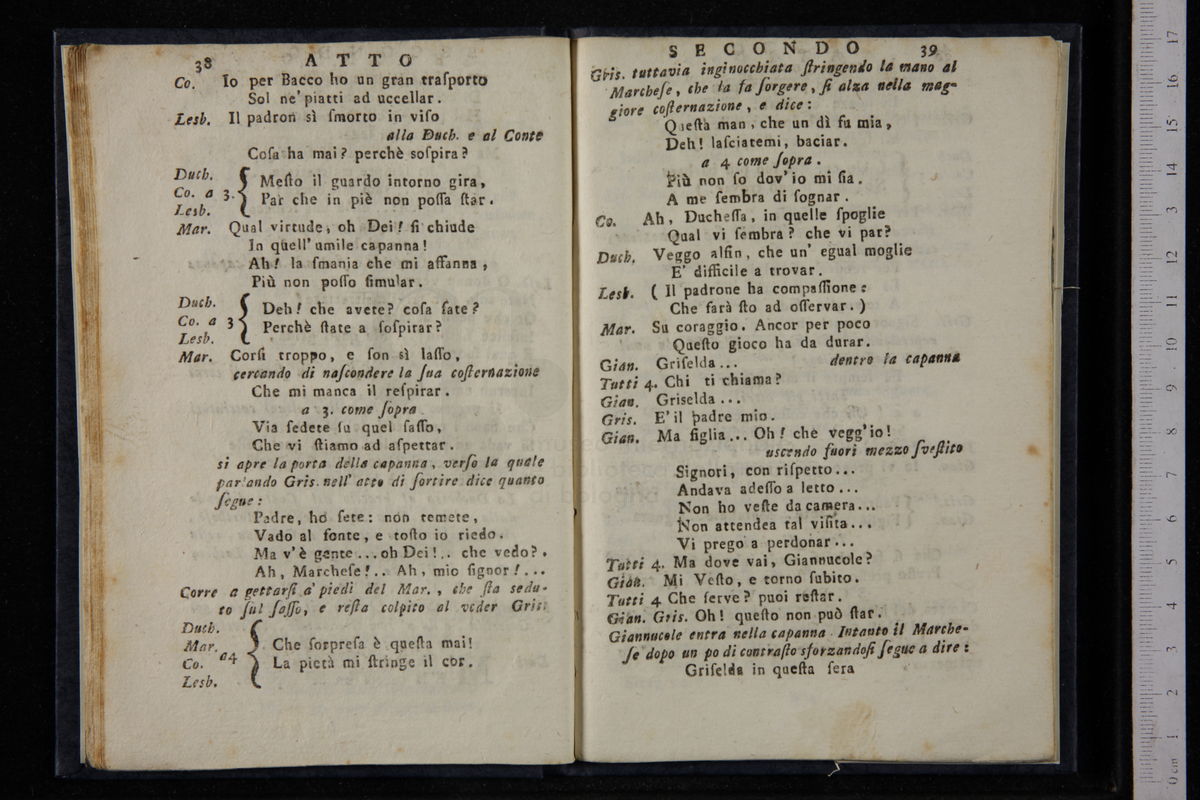 38 ATTO
Co. Io per Bacco ho un gran traſporto
Sol ne' piatti ad uccellar.
Lesb. Il padron sì ſmorto in viſo
alla Duch. e al Conte
Coſa ha mai? perchè soſpira?
Duch.
Co. a 3.
Lesb.
Meſto il guardo intorno gira,
Par che in piè non poſſa ſtar.
Mar. Qual virtude, oh Dei! ſi chiude
In quell' umile capanna!
Ah! la ſmania che mi affanna,
Più non poſſo ſimular.
Duch.
Co. a 3
Lesb.
Deh! che avete? coſa fate?
Perchè ſtate a ſoſpirar?
Mar. Corſi troppo, e ſon sì laſſo,
cercando di naſcondere la ſua coſternazione
Che mi manca il reſpirar.
a 3. come ſopra
Via ſedete ſu quel ſaſſo,
Che vi ſtiamo ad aſpettar.
si apre la porta della capanna, verſo la quale
parlando Gris. nell' atto di ſortire dice quanto
ſegue:
Padre, ho ſete: non temete,
Vado al fonte, e toſto io riedo.
Ma v'è gente ... oh Dei!.. che vedo?.
Ah, Marcheſe!.. Ah, mio ſignor!...
Corre a gettarſi a' piedi del Mar., che ſta sedu-
to ſul ſaſſo, e reſta colpito al veder Gris:
Duch.
Mar.
Co. a4
Lesb.
Che ſorpreſa è queſta mai!
La pietà mi ſtringe il cor.
SECONDO 39
Gris. tuttavia inginocchiata ſtringendo la mano al
Marcheſe, che la fa ſorgere, ſi alza nella mag-
giore coſternazione, e dice:
Queſta man, che un dì fu mia,
Deh! laſciatemi, baciar.
a 4 come ſopra.
Più non ſo dov'io mi ſia.
A me ſembra di ſognar.
Co. Ah, Ducheſſa, in quelle ſpoglie
Qual vi ſembra? che vi par?
Duch. Veggo alfin, che un' egual moglie
E' difficile a trovar.
Lesb. (Il padrone ha compaſſione:
Che farà ſto ad oſſervar.)
Mar. Su coraggio. Ancor per poco
Queſto gioco ha da durar.
Gian. Griſelda... dentro la capanna
Tutti 4. Chi ti chiama?
Gian. Griselda...
Gris. E' il padre mio.
Gian. Ma figlia... Oh! che vegg'io!
uscendo fuori mezzo ſveſtito
Signori, con riſpetto...
Andava adeſſo a letto...
Non ho veſte da camera...
Non attendea tal viſita...
Vi prego a perdonar...
Tutti 4. Ma dove vai, Giannucole?
Gian. Mi Veſto, e torno ſubito.
Tutti 4 Che ſerve? puoi reſtar.
Gian. Gris. Oh! queſto non può ſtar.
Giannucole entra nella capanna. Intanto il Marche-
ſe dopo un po di contraſto sforzandoſi ſegue a dire:
Griſelda in queſta ſera